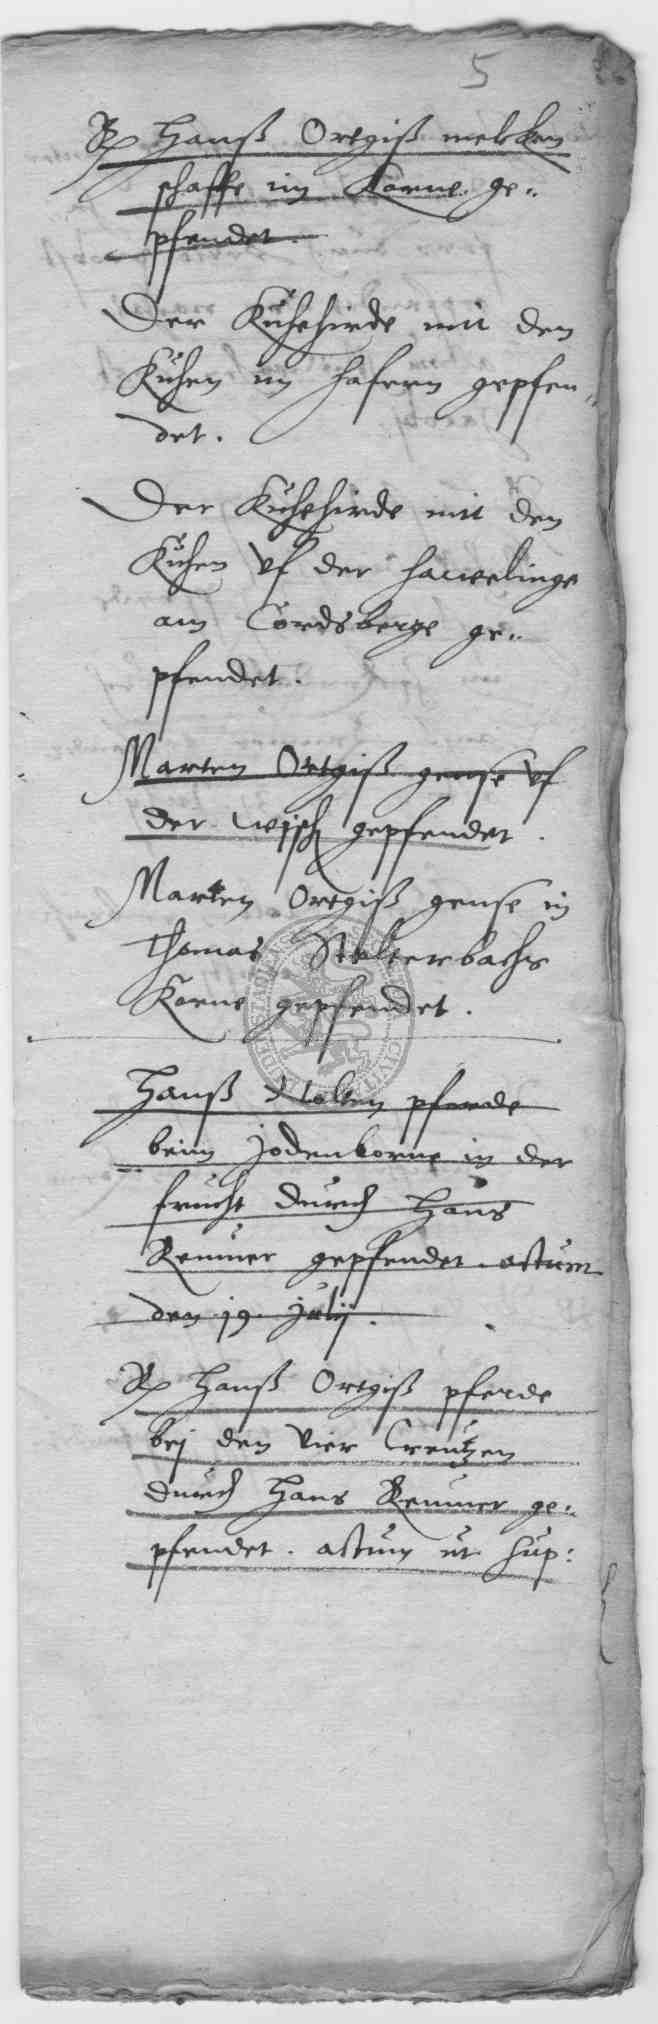 5
Rp Hanß Ortgiß melcken
schaffe im Korne ge„
pfendet.
Der Kuhehirde mit den
Kuhen im hafern gepfen„
det.
Der Kuhehirde mit den
Kuhen vf der haueelinge
am Cordsberge ge„
pfendet.
Marten Ortgiß gense vf
der wisch gepfendet.
Marten Ortgiß gense in
Thomas Stalterbachs
Korne gepfendet.
Hanß Nolten pferde
beim Jodenborne in der
frucht durch Hans
Remmer gepfendet. actum
den 19. Julij.
Rp Hanß Ortgiß pferde
bej den vier Creutzen
durch Hans Remmer ge„
pfendet. actum ut sup: